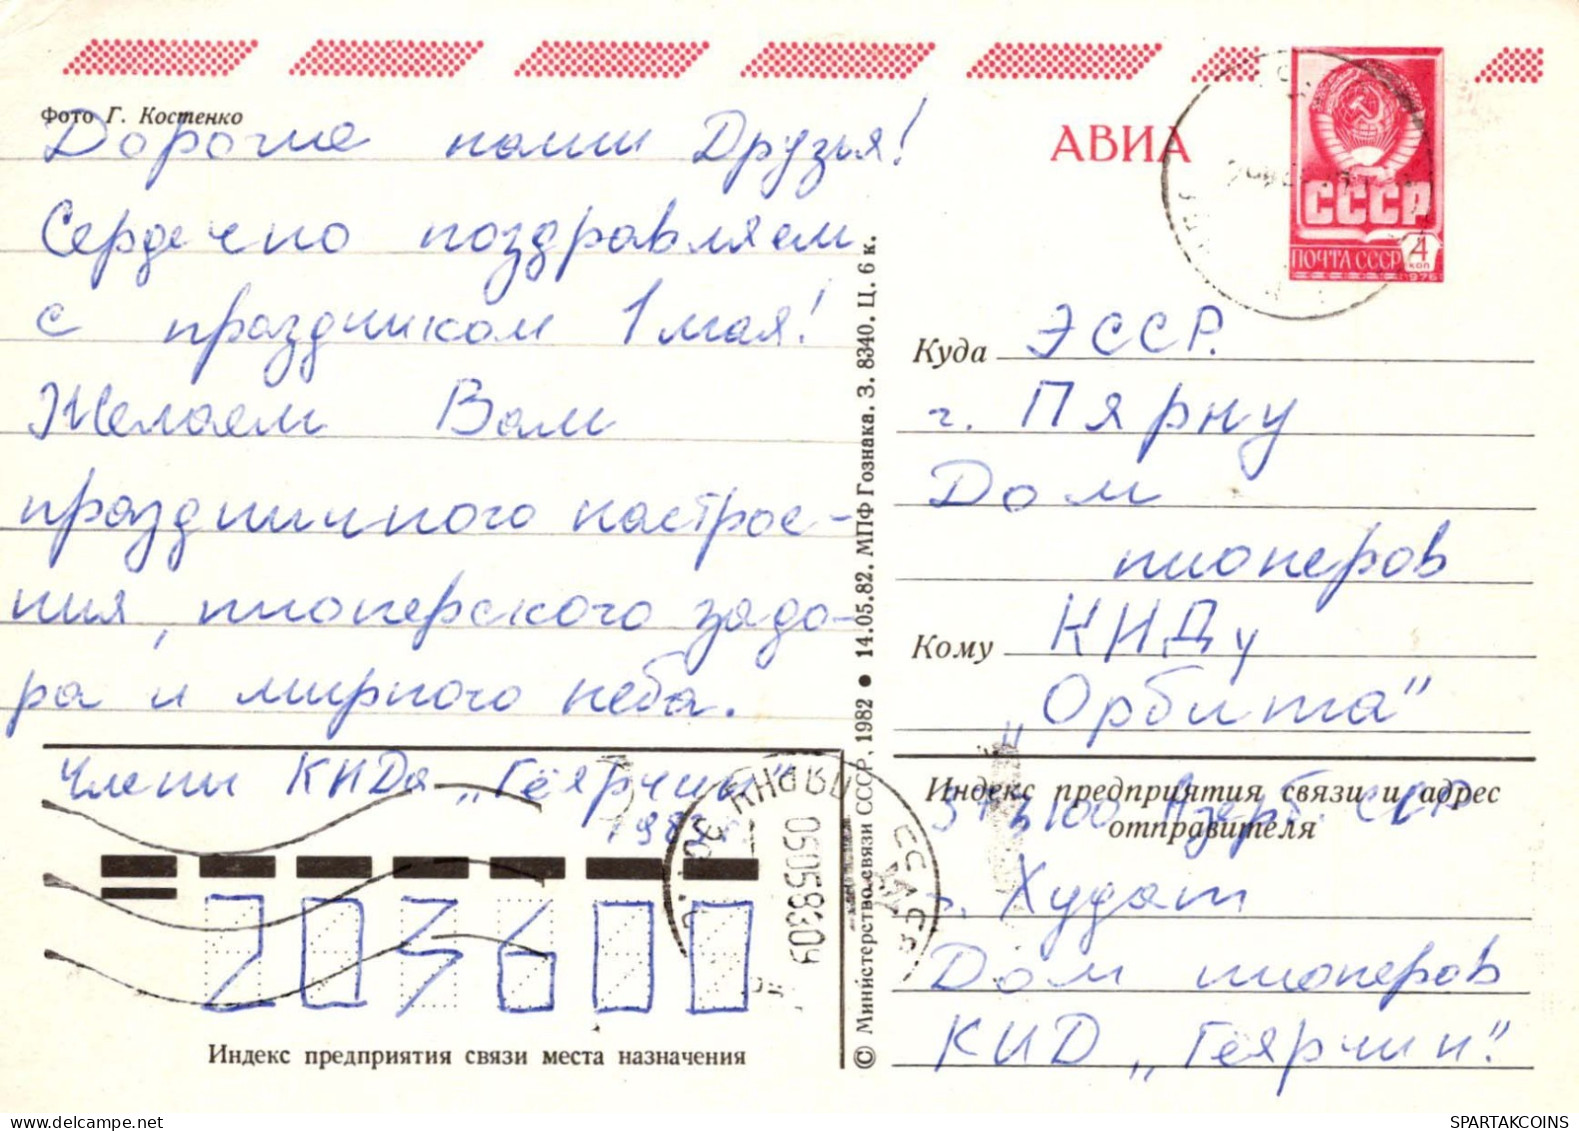 Фото Г. Костенко
Дорогие наши Друзья!
Сердечно поздравляем
с праздником 1 мая!
Желаем Вам
праздничного настрое-
ния, пионерского задо-
ра и мирного неба.
Члены КИДа „Гёярчин"
1983
203600
Индекс предприятия связи места назначения
© Министерство связи СССР, 1982 ● 14.05.82. МПФ Гознака. З. 8340. Ц. 6 к.
АВИА
СССР
ПОЧТА СССР 4 КОП
1976
Куда ЭССР.
г. Пярну
Дом
пионеров
Кому КИДу
„Орбита"
Индекс предприятия связи и адрес
отправителя
373100 Азерб. ССР
г. Худат
Дом пионеров
КИД „Гёярчин".
05058309
SPARTAKCOINS